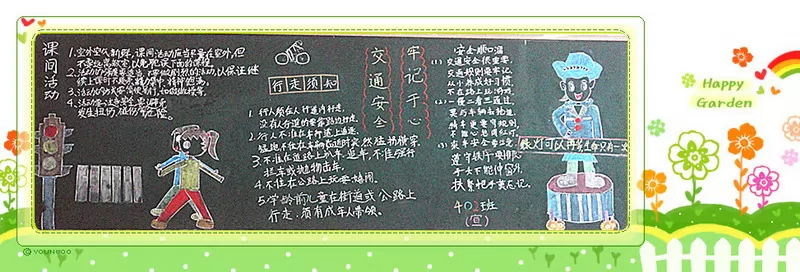 课间活动
1.室外空气新鲜,课间活动应当尽量在室外,但
不要远离教室,以免耽误下面的课程。
2.活动的强度要适当,不要做剧烈的活动,以保证继
续上课时不疲劳,精力集中,精神饱满。
3.活动的方式要简便易行,如做做操等。
4.活动要注意安全,要避免
发生扭伤、碰伤等危险。
行走须知
1.行人须在人行道内行走,
没有人行道的要靠路边行走。
2.行人不准在车行道上追逐、
猛跑,不准在车辆临近时突然猛拐横穿。
3.不准在道路上扒车、追车,不准强行
拦车或抛物击车。
4.不准在公路上玩耍、嬉闹。
5.学龄前儿童在街道或公路上
行走,须有成年人带领。
交通安全
牢记于心
安全顺口溜
(1)交通安全很重要,
交通规则要牢记,
从小养成好习惯,
不在路上玩游戏。
(2)一慢二看三通过,
莫与车辆去抢道。
骑车更要守规则,
不能心急闯红灯。
(3)乘车安全要注意,
遵守秩序要排队,
手头不能伸窗外,
扶紧把手莫忘记。
402班
(宣)
绿灯可以再等 生命只有一次
Happy
Garden
© YOUNUOO